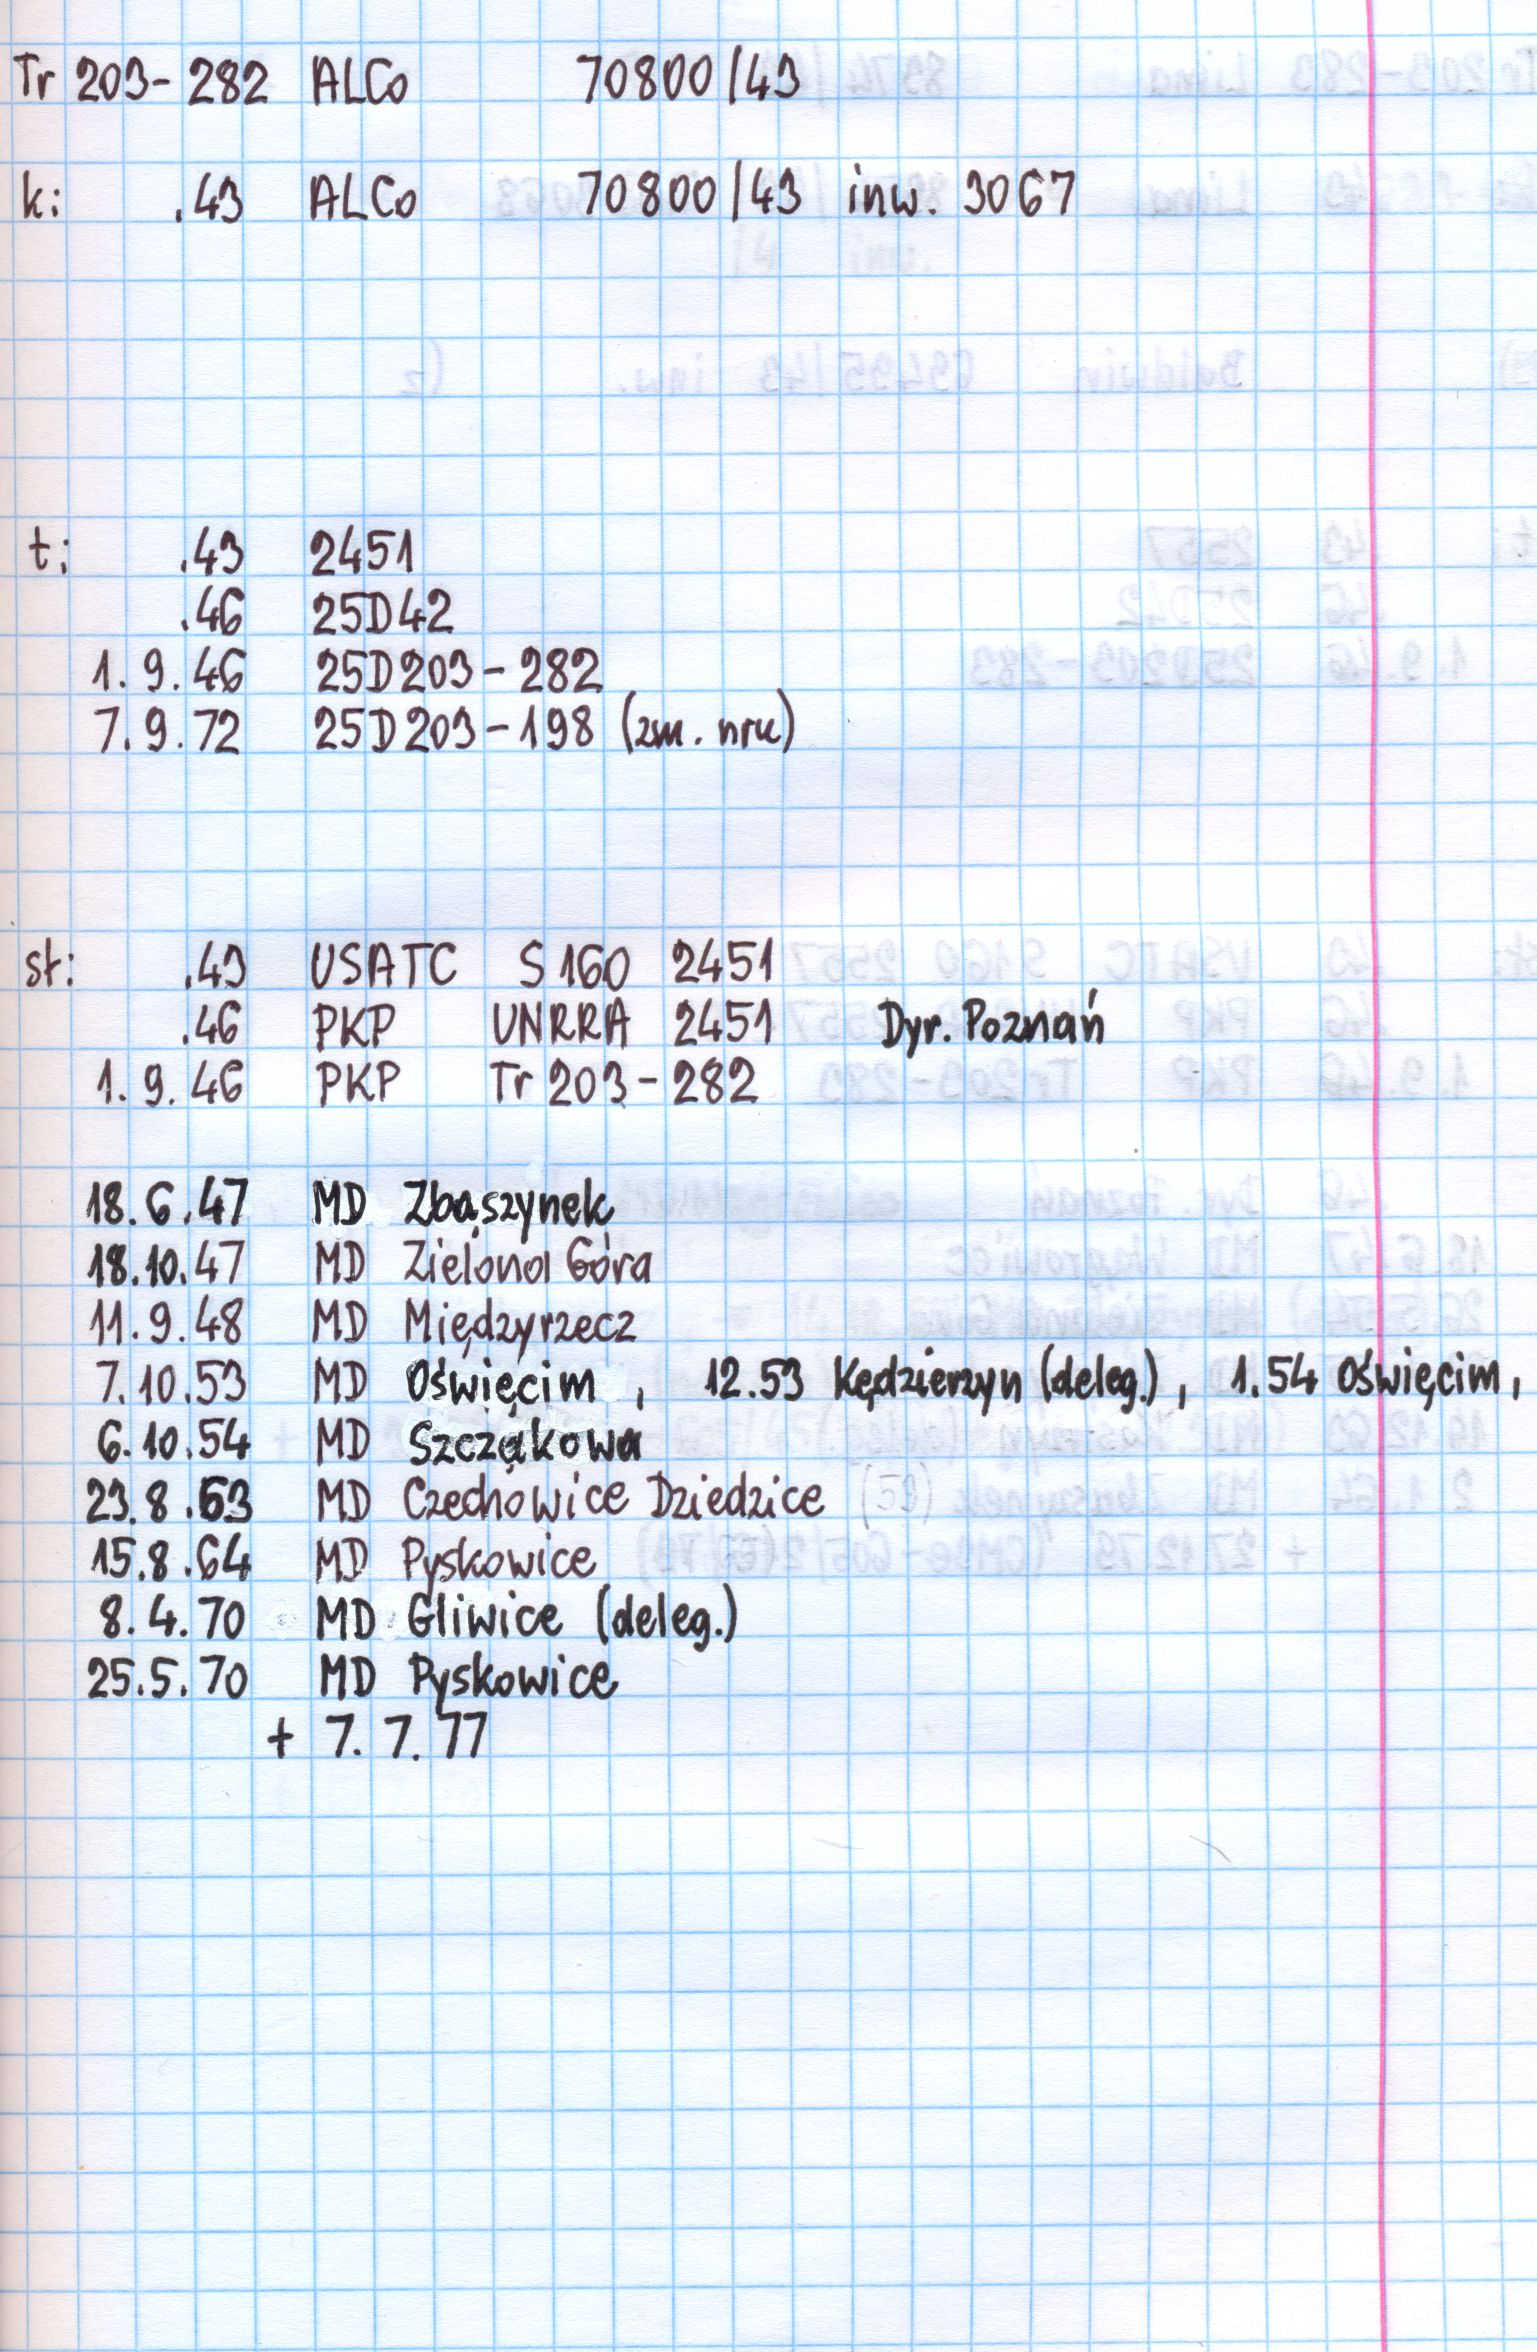 Tr 203-282 ALCo 70800/43
k: .43 ALCo 70800/43 inw. 3067
t: .43 2451
.46 25D42
1.9.46 25D203-282
7.9.72 25D203-198 (zm. nru)
st: .43 USATC S160 2451
.46 PKP UNRRA 2451 Dyr. Poznań
1.9.46 PKP Tr 203-282
18.6.47 MD Zbąszynek
18.10.47 MD Zielona Góra
11.9.48 MD Międzyrzecz
7.10.53 MD Oświęcim, 12.53 Kędzierzyn (deleg.), 1.54 Oświęcim,
6.10.54 MD Szczakowa
23.8.63 MD Czechowice Dziedzice
15.8.64 MD Pyskowice
8.4.70 MD Gliwice (deleg.)
25.5.70 MD Pyskowice
+ 7.7.77